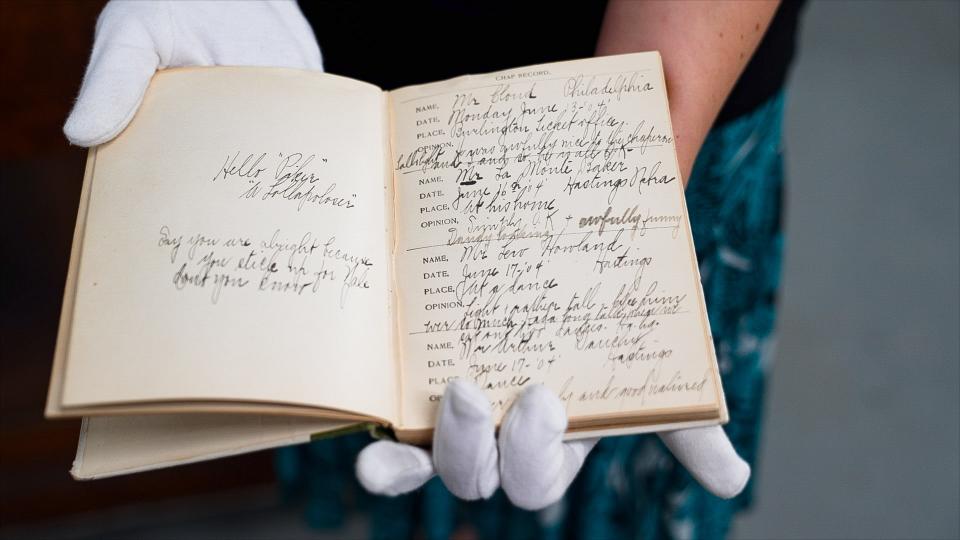 Hello "Piker"
"A Lollapoloser"
Say you are alright because
you stick up for Yale
dont you know
CHAP RECORD.
NAME, Mr Cloud Philadelphia
DATE, Monday June 13-'04'
PLACE, Burlington ticket office.
OPINION, was awfully nice to the chaperon
and
NAME, Mr La Monte Baker
DATE, June 16th '04' Hastings Nebra
PLACE, At his home
OPINION, Simply O.K + awfully funny
Dandy looking
NAME, Mr Lew Howland
DATE, June 17-'04' Hastings
PLACE, At a dance
OPINION, light, rather tall, likes him
ever so much, had a long talk
out on two dances.
NAME, Mr Arthur Dauchy
DATE, June 17-'04' Hastings
PLACE, Dance
OP and good natured